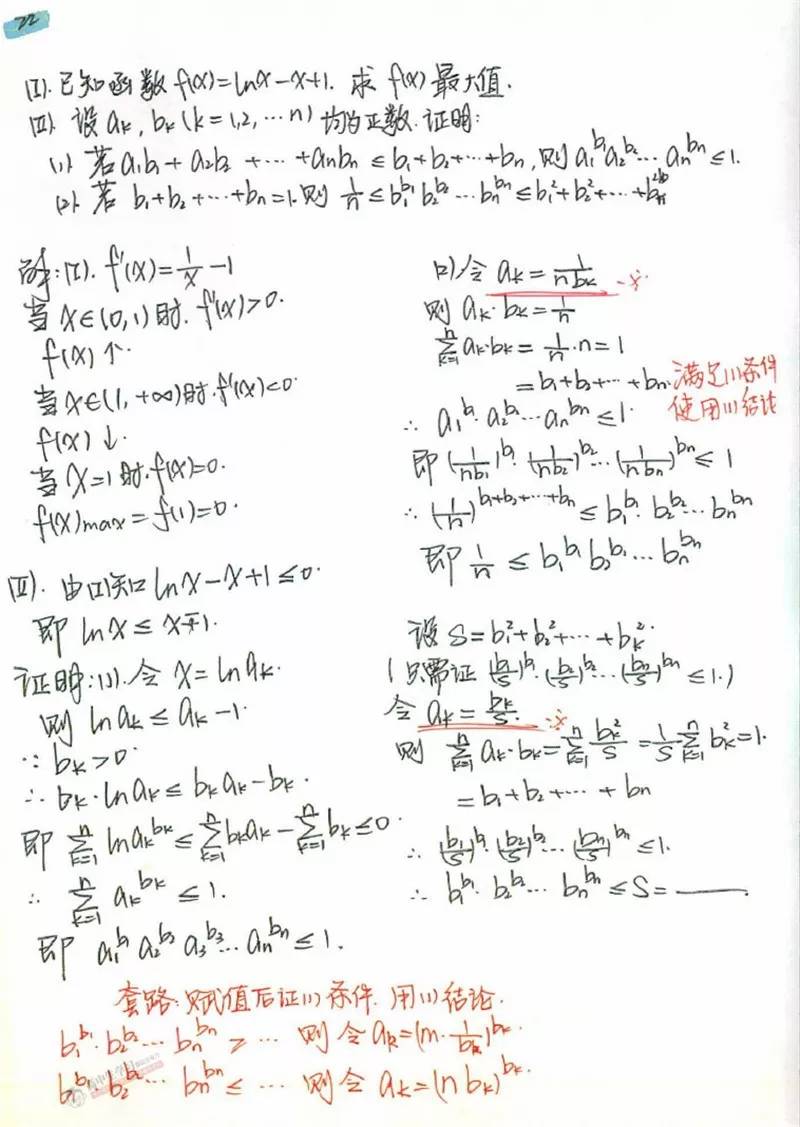 22
(I). 已知函数 f(x)=lnx-x+1. 求 f(x) 最大值.
(II). 设 aₖ, bₖ (k=1,2,…n) 均为正数. 证明:
(1) 若 a₁b₁+a₂b₂+…+aₙbₙ ≤ b₁+b₂+…+bₙ, 则 a₁^b₁ a₂^b₂…aₙ^bₙ ≤ 1.
(2) 若 b₁+b₂+…+bₙ=1. 则 1/n ≤ b₁^b₁ b₂^b₂…bₙ^bₙ ≤ b₁²+b₂²+…+bₙ²
解: (I). f'(x)=1/x-1
当 x∈(0,1) 时. f'(x)>0.
f(x)↑.
当 x∈(1,+∞) 时. f'(x)<0.
f(x)↓.
当 x=1 时. f(x)=0.
f(x)max=f(1)=0.
(II). 由(I)知 lnx-x+1≤0.
即 lnx≤x-1.
证明: (1). 令 x=lnaₖ.
则 lnaₖ≤aₖ-1.
∵ bₖ>0.
∴ bₖ·lnaₖ≤bₖaₖ-bₖ.
即 ∑_{k=1}^{n} lnaₖ^bₖ ≤ ∑_{k=1}^{n} bₖaₖ - ∑_{k=1}^{n} bₖ ≤ 0.
∴ ∑_{k=1}^{n} aₖ^bₖ ≤ 1.
即 a₁^b₁ a₂^b₂ a₃^b₃…aₙ^bₙ ≤ 1.
(2) 令 aₖ=1/(nbₖ)
则 aₖ·bₖ=1/n
∑_{k=1}^{n} aₖ·bₖ=1/n·n=1
=b₁+b₂+…+bₙ. 满足(1)条件
使用(1)结论
∴ a₁^b₁·a₂^b₂…aₙ^bₙ ≤ 1.
即 (1/(nb₁))^b₁·(1/(nb₂))^b₂…(1/(nbₙ))^bₙ ≤ 1
∴ (1/n)^(b₁+b₂+…+bₙ) ≤ b₁^b₁·b₂^b₂…bₙ^bₙ
即 1/n ≤ b₁^b₁ b₂^b₂…bₙ^bₙ
设 S=b₁²+b₂²+…+bₖ².
(只需证 (b₁/S)^b₁·(b₂/S)^b₂…(bₙ/S)^bₙ ≤ 1.)
令 aₖ=bₖ/S.
则 ∑_{k=1}^{n} aₖ·bₖ=∑_{k=1}^{n} bₖ²/S=1/S ∑_{k=1}^{n} bₖ²=1.
=b₁+b₂+…+bₙ
∴ (b₁/S)^b₁·(b₂/S)^b₂…(bₙ/S)^bₙ ≤ 1.
∴ b₁^b₁·b₂^b₂…bₙ^bₙ ≤ S=____.
套路: 赋值后证(1)条件. 用(1)结论.
b₁^b₁·b₂^b₂…bₙ^bₙ ≥ … 则令 aₖ=(m·1/bₖ)^bₖ.
b₁^b₁·b₂^b₂…bₙ^bₙ ≤ … 则令 aₖ=(nbₖ)^bₖ.